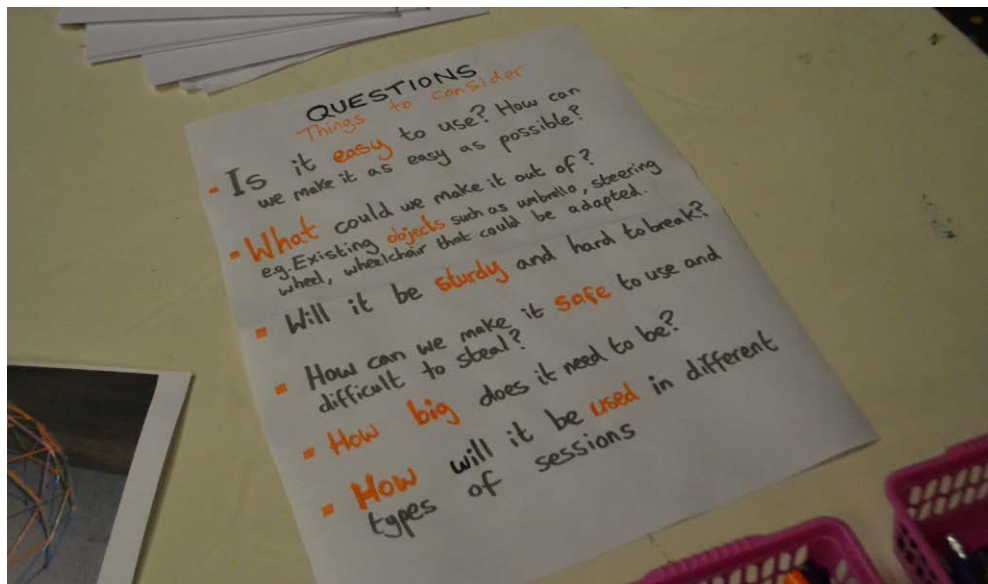 QUESTIONS
Things to consider
- Is it easy to use? How can
we make it as easy as possible?
- What could we make it out of?
e.g. Existing objects such as umbrella, steering
wheel, wheelchair that could be adapted.
- Will it be sturdy and hard to break?
- How can we make it safe to use and
difficult to steal?
- How big does it need to be?
- How will it be used in different
types of sessions